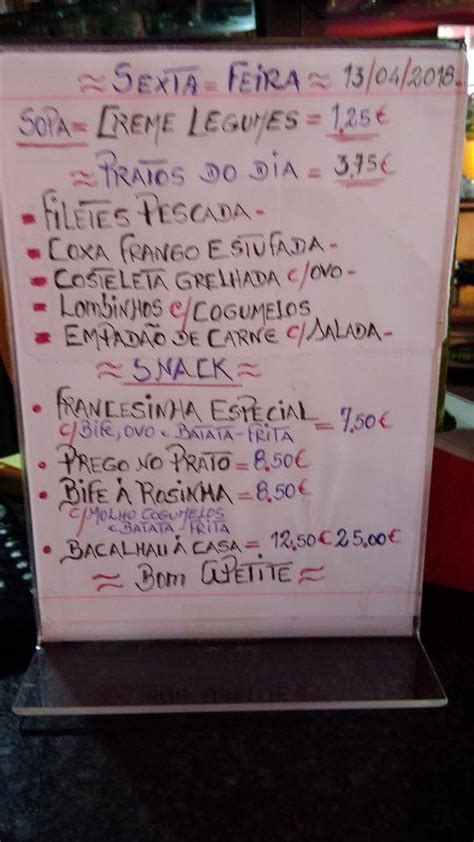 ≈ SEXTA = FEIRA ≈ 13/04/2018
SOPA = CREME LEGUMES = 1,25€
≈ PRATOS DO DIA = 3,75€
- FILETES PESCADA -
- COXA FRANGO ESTUFADA -
- COSTELETA GRELHADA C/OVO -
- LOMBINHOS C/COGUMELOS
- EMPADÃO DE CARNE C/SALADA -
≈ SNACK ≈
• FRANCESINHA ESPECIAL = 7,50€
C/BIFE, OVO e BATATA-FRITA
• PREGO NO PRATO = 8,50€
• BIFE À ROSINHA = 8,50€
C/MOLHO COGUMELOS
e BATATA-FRITA
• BACALHAU À CASA = 12,50€ 25,00€
≈ BOM APETITE ≈